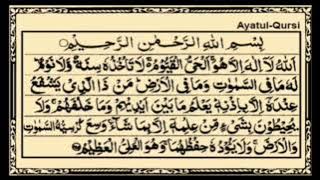 Ayatul-Qursi
بِسْمِ اللهِ الرَّحْمٰنِ الرَّحِيْمِ
اَللهُ لَآ اِلٰهَ اِلَّا هُوَ اَلْحَیُّ الْقَیُّوْمُ لَا تَاْخُذُهٗ سِنَةٌ وَّلَا نَوْمٌ
لَهٗ مَا فِی السَّمٰوٰتِ وَمَا فِی الْاَرْضِ مَنْ ذَا الَّذِیْ یَشْفَعُ
عِنْدَهٗٓ اِلَّا بِاِذْنِهٖ یَعْلَمُ مَا بَیْنَ اَیْدِیْهِمْ وَمَا خَلْفَهُمْ وَلَا
یُحِیْطُوْنَ بِشَیْءٍ مِّنْ عِلْمِهٖٓ اِلَّا بِمَا شَآءَ وَسِعَ كُرْسِیُّهُ السَّمٰوٰتِ
وَالْاَرْضَ وَلَا یَئُوْدُهٗ حِفْظُهُمَا وَهُوَ الْعَلِیُّ الْعَظِیْمُ